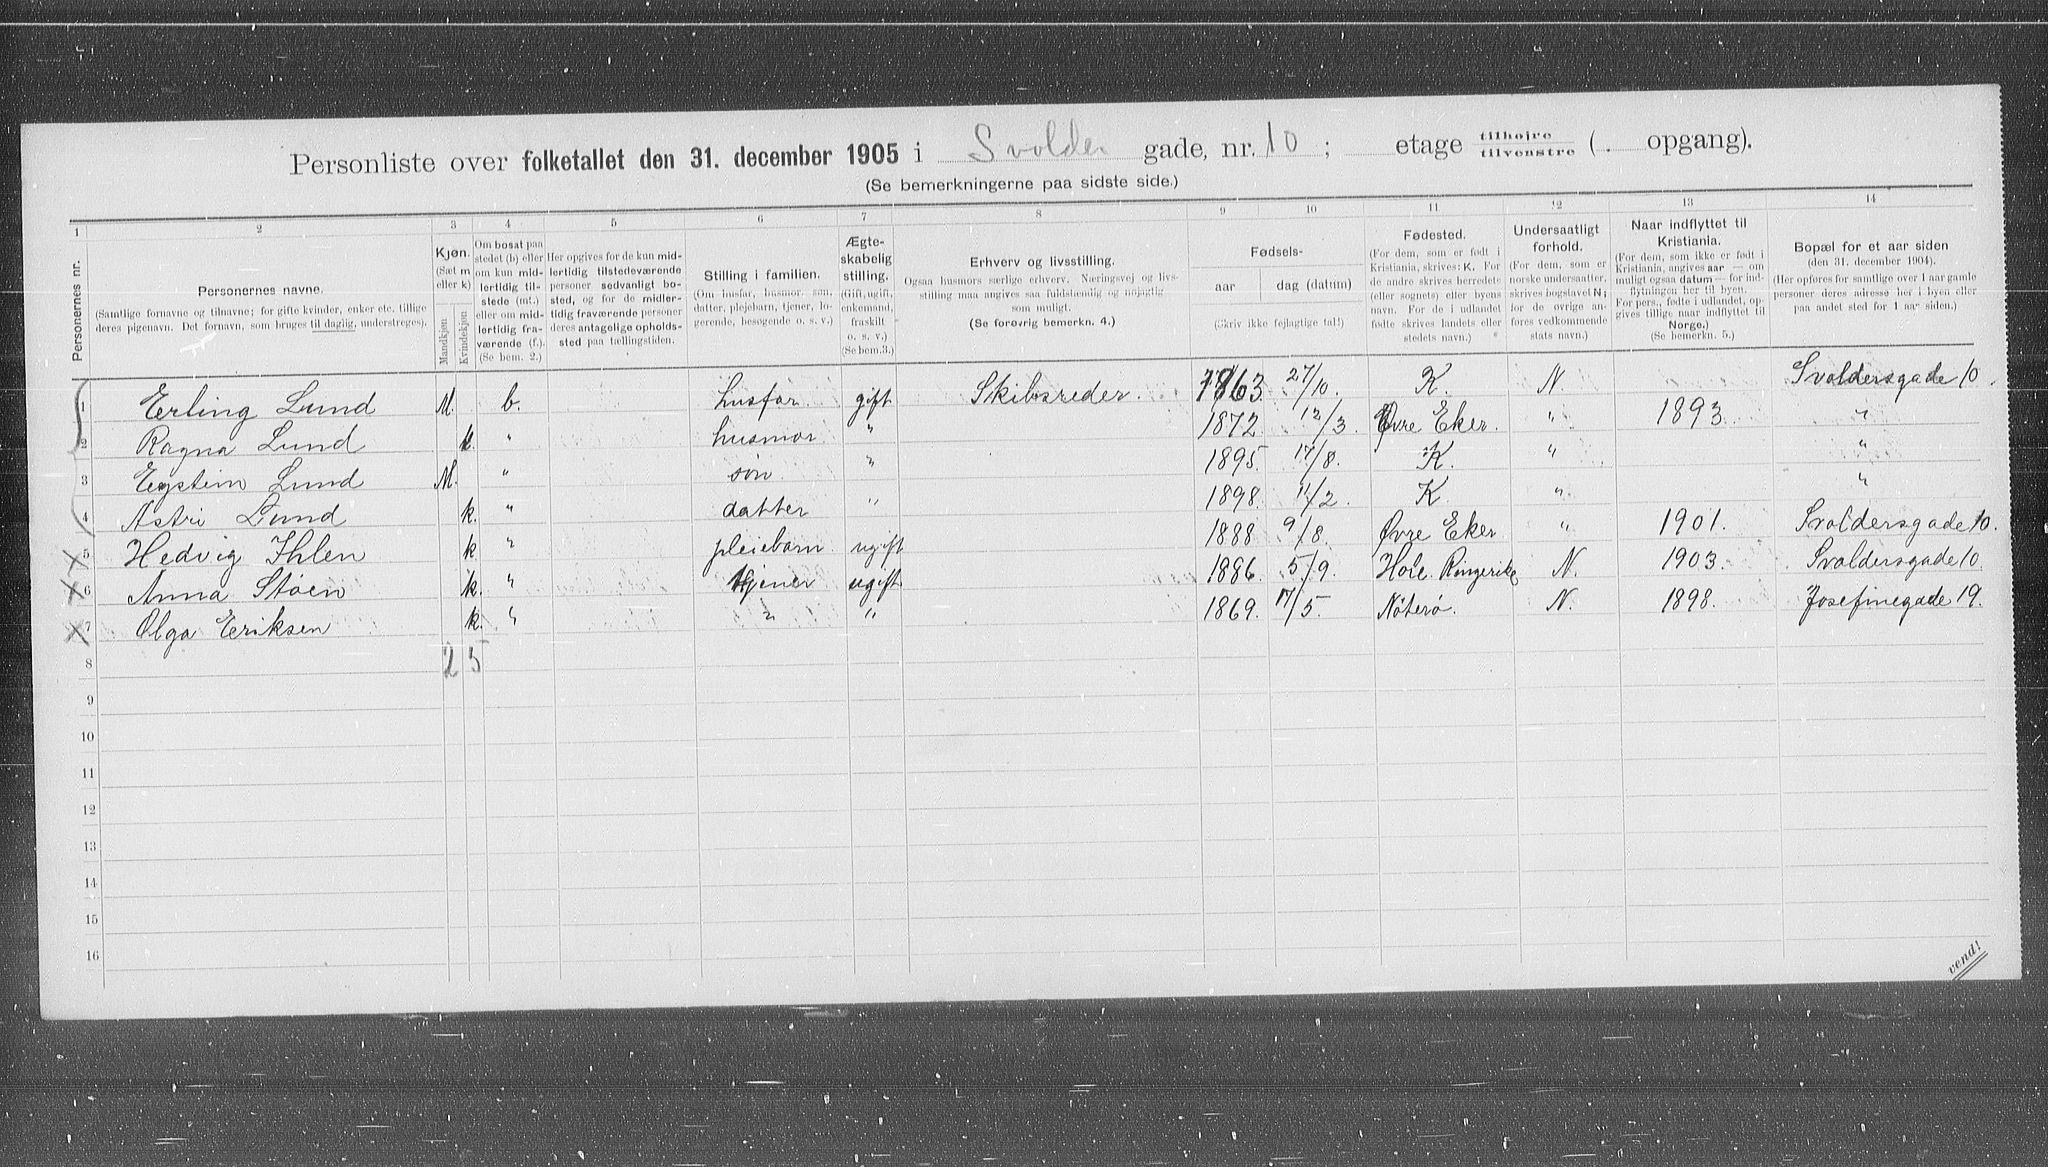 Personliste over folketallet den 31. december 1905 i Svolder gade, nr. 10 ; etage tilhøjre tilvenstre ( . opgang).
(Se bemerkningerne paa sidste side.)
1 2 3 4 5 6 7 8 9 10 11 12 13 14
Personernes nr.
Personernes navne.
(Samtlige fornavne og tilnavne; for gifte kvinder, enker etc. tillige
deres pigenavn. Det fornavn, som bruges til daglig, understreges).
Kjøn.
(Sæt m
eller k)
Mandkjøn
Kvindekjøn
Om bosat paa
stedet (b) eller
om kun mid-
lertidig til-
stede (mt.)
eller om mid-
lertidig fra-
værende (f.).
(Se bem. 2.)
Her opgives for de kun mid-
lertidig tilstedeværende
personer sedvanligt bo-
sted, og for de midler-
tidig fraværende personer
deres antagelige opholds-
sted paa tællingstiden.
Stilling i familien.
(Om husfar, husmor, søn,
datter, plejebarn, tjener, lo-
gerende, besøgende o. s. v.)
Ægte-
skabelig
stilling.
(Gift, ugift,
enkemand,
fraskilt
o. s. v.)
(Se bem.3.)
Erhverv og livsstilling.
Ogsaa husmors særlige erhverv. Næringsvej og livs-
stilling maa angives saa fuldstændig og nøjagtig
som muligt.
(Se forøvrig bemerkn. 4.)
Fødsels-
aar dag (datum)
(Skriv ikke fejlagtige tal!)
Fødested.
(For dem, som er født i
Kristiania, skrives: K. For
de andre skrives herredets
(eller sognets) eller byens
navn. For de i udlandet
fødte skrives landets eller
stedets navn.)
Undersaatligt
forhold.
(For dem, som er
norske undersaatter,
skrives bogstavet N;
for de øvrige an-
føres vedkommende
stats navn.)
Naar indflyttet til
Kristiania.
(For dem, som ikke er født i
Kristiania, angives aar — om
muligt ogsaa datum — for ind-
flytningen her til byen.
For pers., fødte i udlandet, op-
gives tillige naar indflyttet til
Norge.)
(Se bemerkn. 5.)
Bopæl for et aar siden
(den 31. december 1904).
(Her opføres for samtlige over 1 aar gamle
personer deres adresse her i byen eller
paa andet sted for 1 aar siden.)
1 Erling Lund M. b. husfar. gift Skibsreder. 1863 27/10. K. N Svoldersgade 10.
2 Ragna Lund k. " husmor " 1872 12/3. Øvre Eker. " 1893 "
3 Eystein Lund M. " søn " 1895 17/8. K. " "
4 Astri Lund k. " datter " 1898 11/2. K. " "
5 Hedvig Ihlen k " pleiebarn ugift 1888 9/8. Øvre Eker " 1901. Svoldersgade 10.
6 Anna Støen k. " tjener ugift 1886. 5/9. Hole Ringerike N. 1903. Svoldersgade 10.
7 Olga Eriksen k. " " " 1869. 17/5. Nøterø. N. 1898. Josefinegade 19.
8 2 5
9
10
11
12
13
14
15
16
vend!